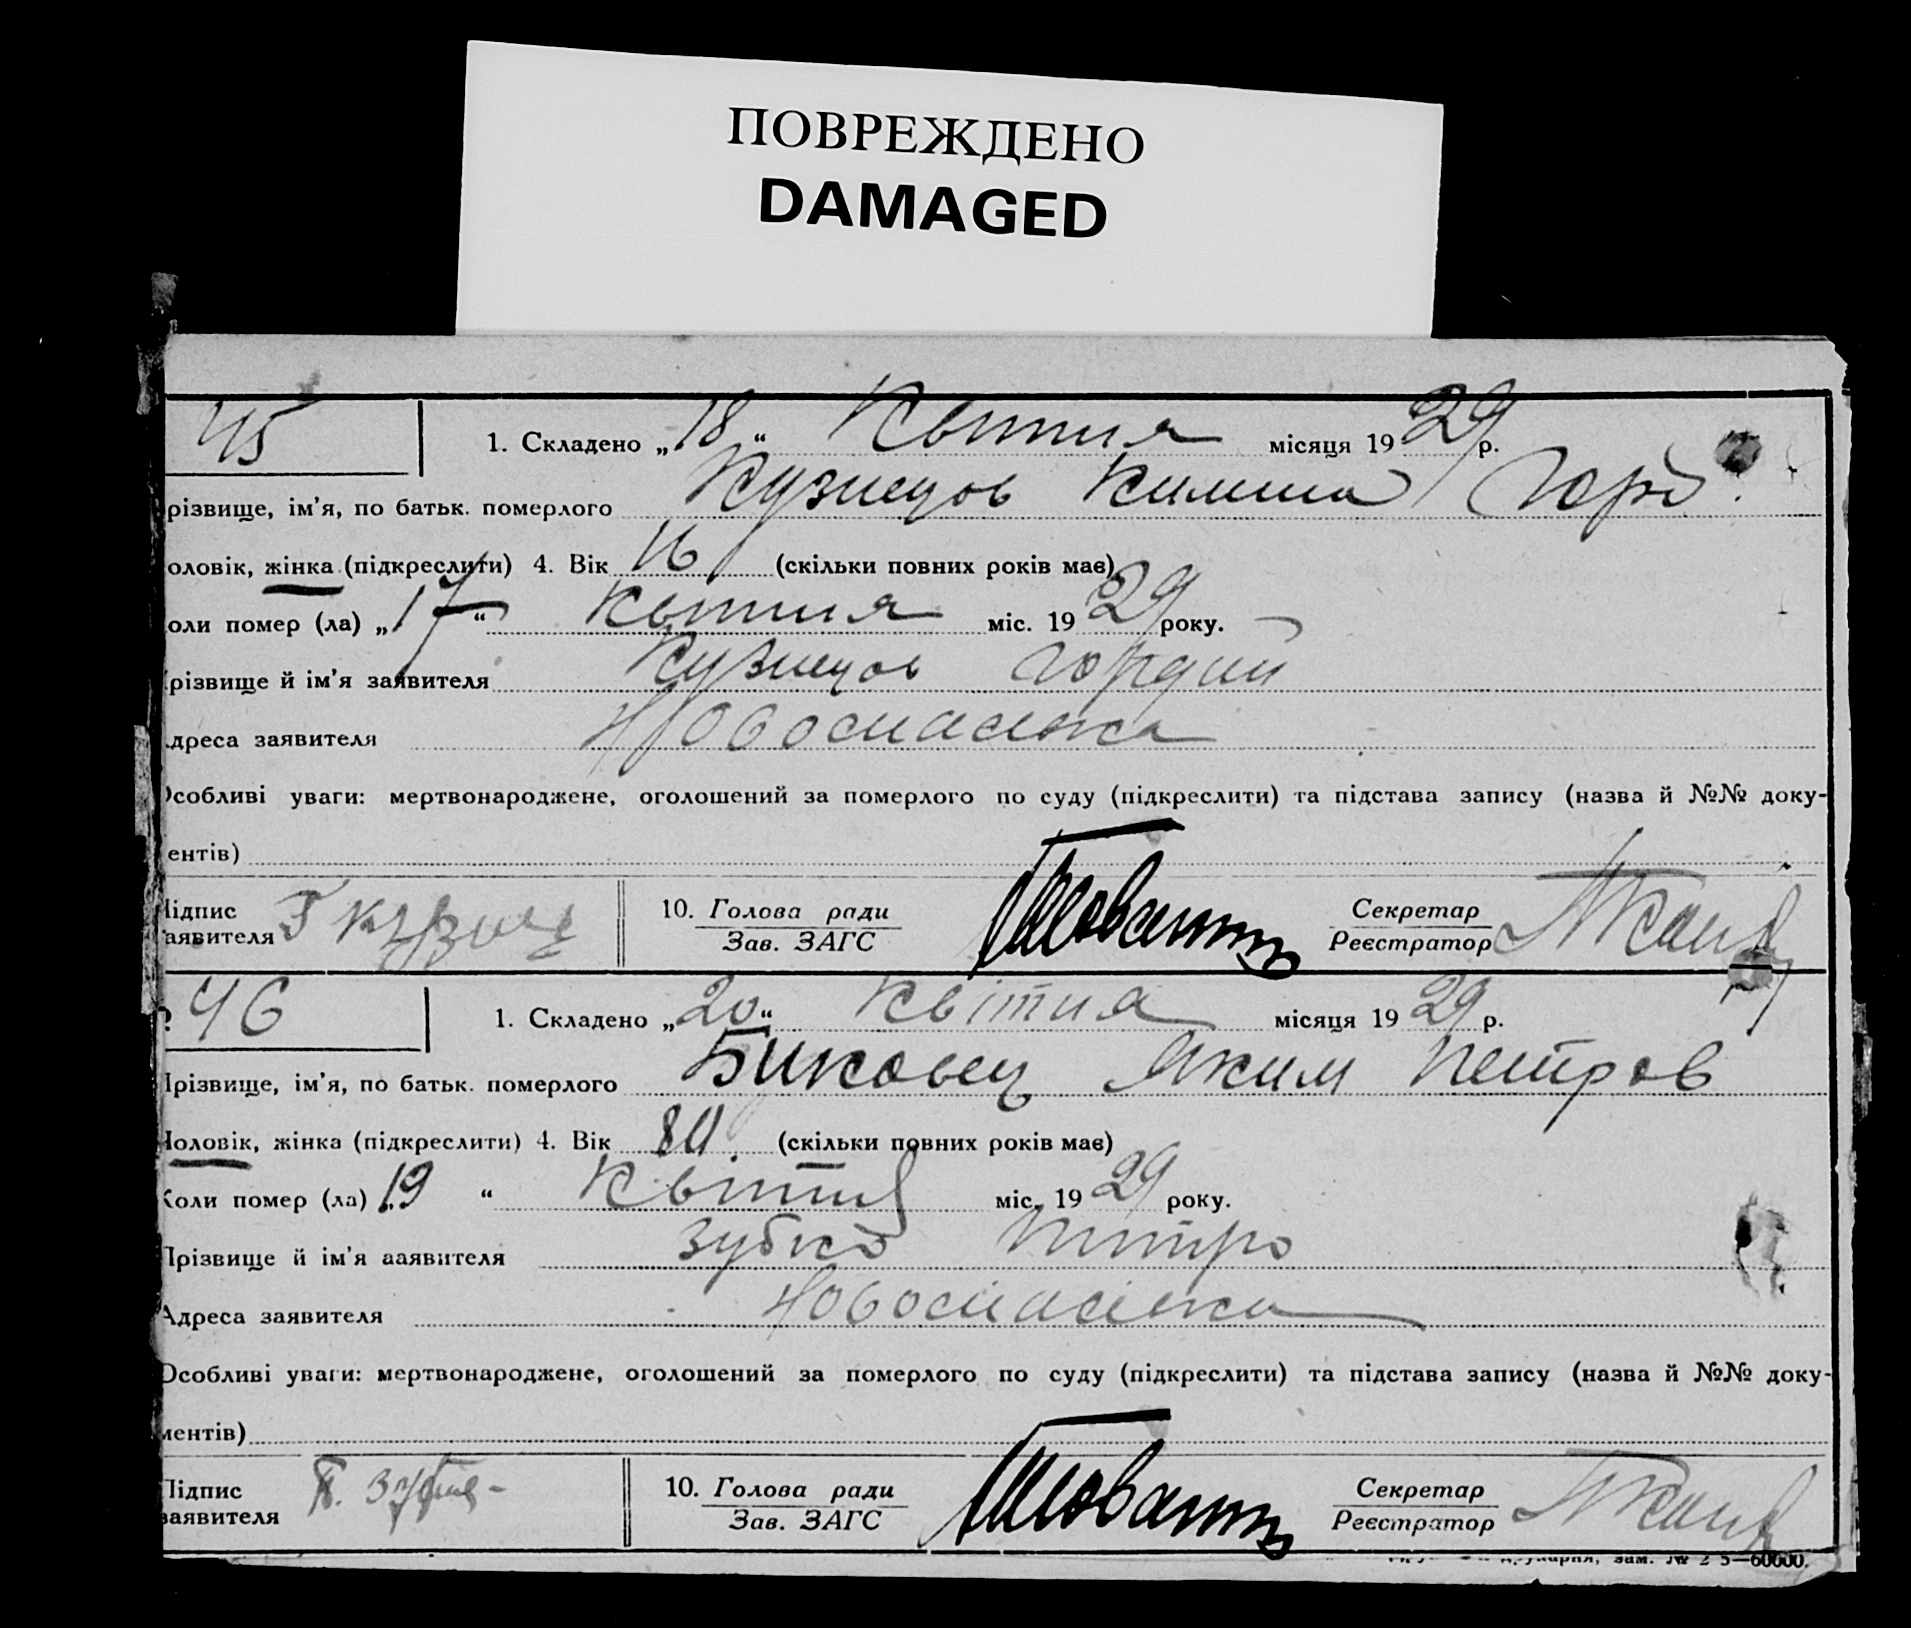 ПОВРЕЖДЕНО
DAMAGED
45
1. Складено „18“ Квітня місяця 1929 р.
різвище, ім'я, по батьк. померлого Кузнецов Горд.
оловік, жінка (підкреслити) 4. Вік 16 (скільки повних років має)
оли помер (ла) „17“ Квітня міс. 1929 року.
різвище й ім'я заявителя Кузнецов Гордий
дреса заявителя Новоспасівка
Особливі уваги: мертвонароджене, оголошений за померлого по суду (підкреслити) та підстава запису (назва й №№ доку-
ентів)
Підпис Г Кузнец 10. Голова ради Секретар
аявителя Зав. ЗАГС Реєстратор
46
1. Складено „20“ Квітня місяця 1929 р.
Прізвище, ім'я, по батьк. померлого Биковец Яким Петров
Чоловік, жінка (підкреслити) 4. Вік 80 (скільки повних років має)
Коли помер (ла) „19“ Квітня міс. 1929 року.
Прізвище й ім'я заявителя Зубко Питро
Адреса заявителя Новоспасівка
Особливі уваги: мертвонароджене, оголошений за померлого по суду (підкреслити) та підстава запису (назва й №№ доку-
ментів)
Підпис П. Зубко 10. Голова ради Секретар
заявителя Зав. ЗАГС Реєстратор
друкарня, зам. № 2 5—60000.